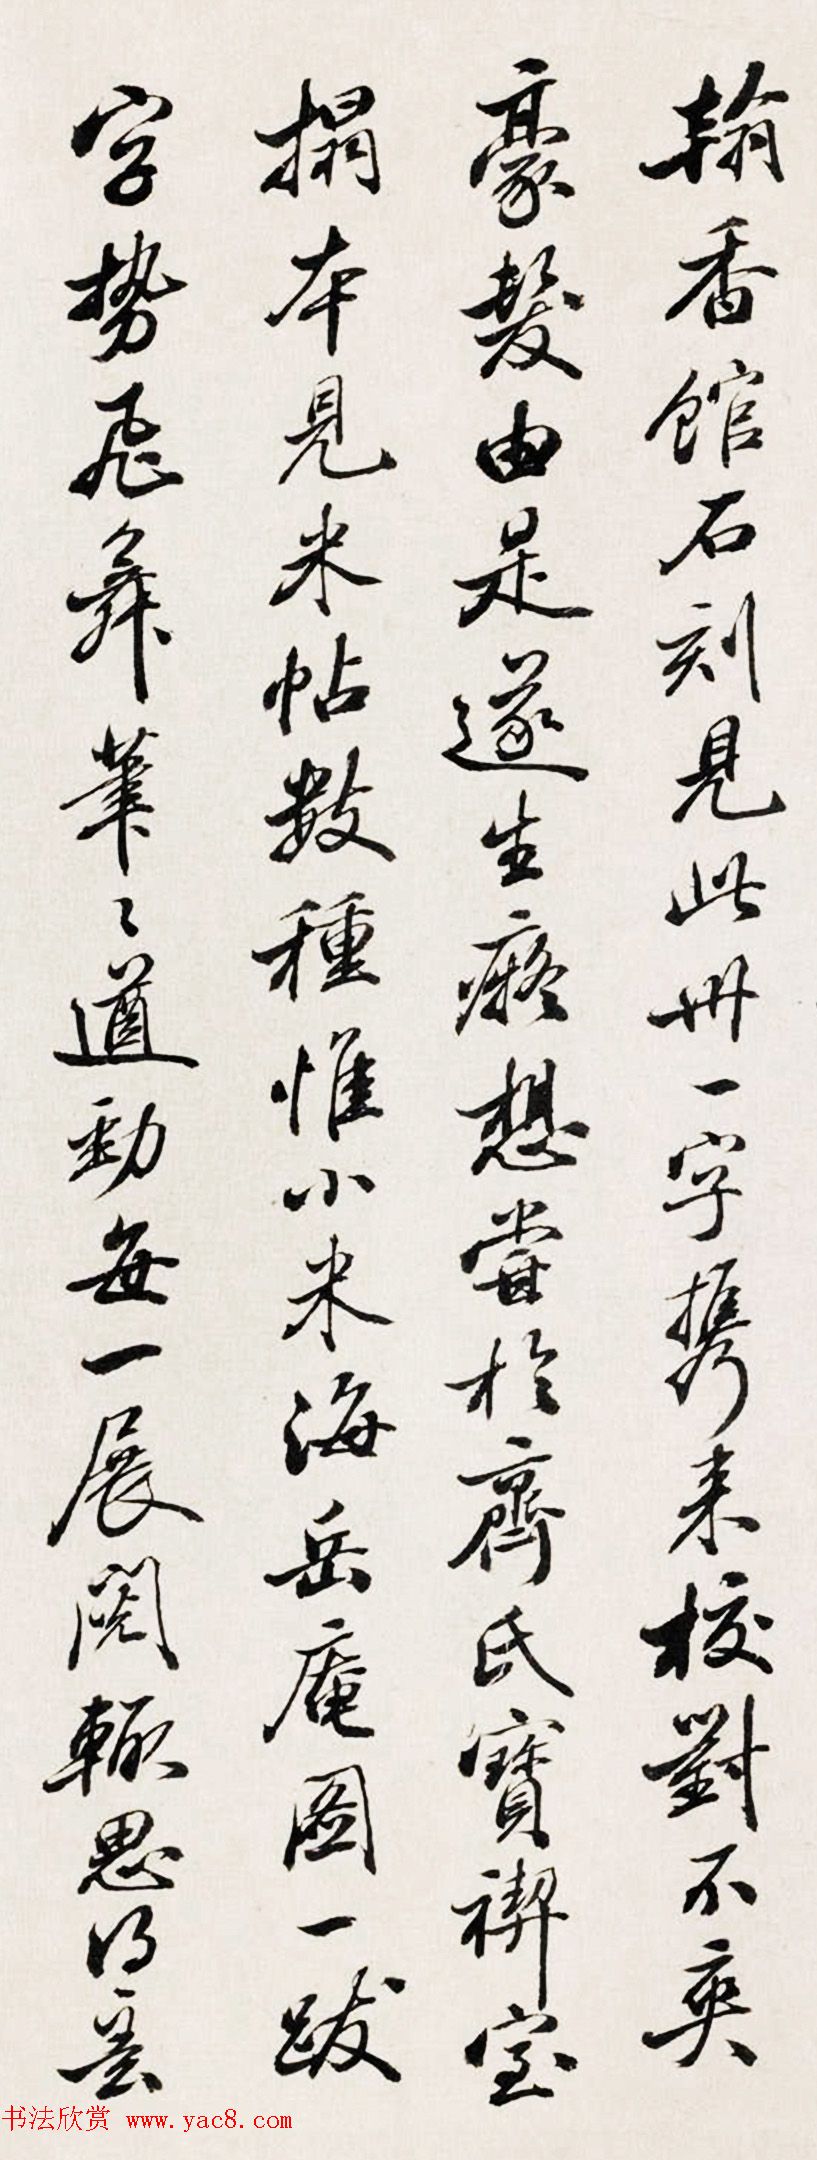 翰香館石刻見此冊一字攜来校對不爽
豪髮由是遂生癡想嘗於齊氏寶禊室
搨本見米帖数種惟小米海岳庵圖一跋
字势飛舞筆〻遒勁每一展閱輒思得墨
书法欣赏 www.yac8.com